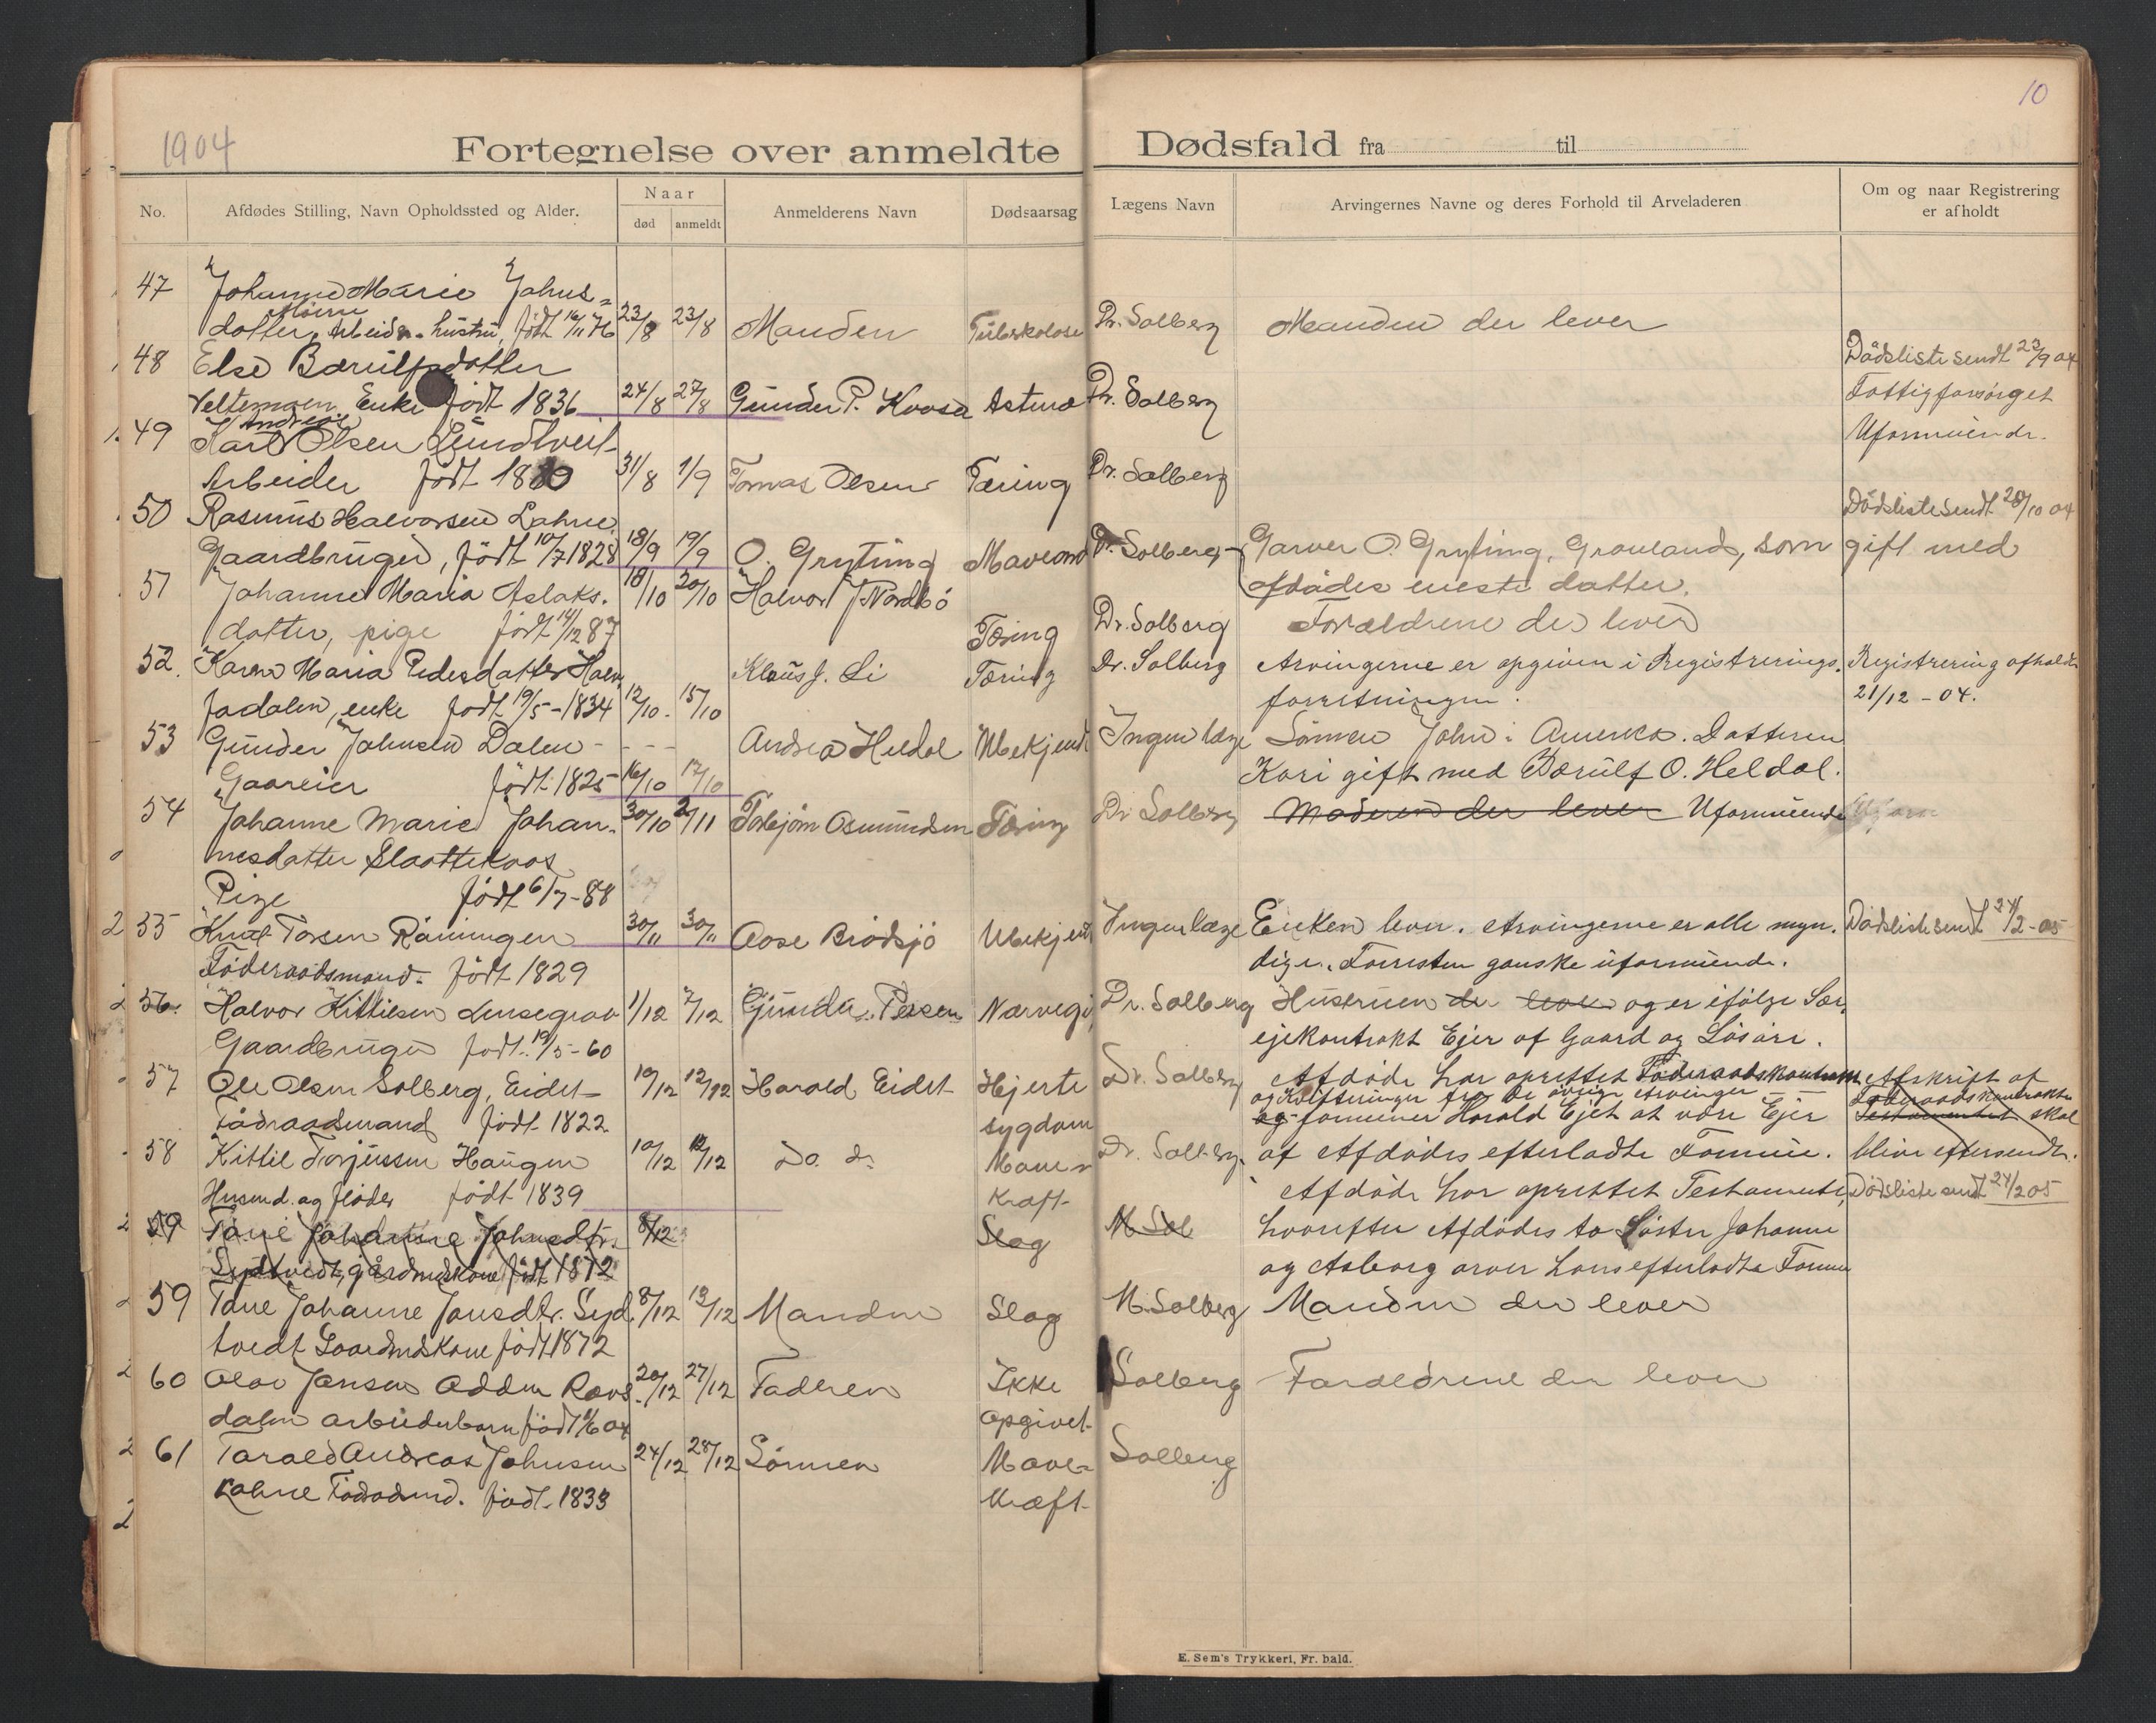 1904
10
Fortegnelse over anmeldte Dødsfald fra til
No. Afdødes Stilling, Navn Opholdssted og Alder. Naar død anmeldt Anmelderens Navn Dødsaarsag Lægens Navn Arvingernes Navne og deres Forhold til Arveladeren Om og naar Registrering er afholdt
47 Johanne Marie Johns=
datter, Arbeider hustru, født 16/11 76 23/8 23/8 Manden Tuberkolose Dr. Solberg Manden der lever
48 Else Bærulfsdatter Dødsliste sendt 23/9 04
Veltemoen Enke født 1836 24/8 27/8 Gunder P. Kvosa Astma Dr. Solberg Fattigforsørget
49 Karl Andreas Olsen Lundtveit Uformuende.
Arbeider født 1880 31/8 1/9 Tomas Olsen Tæring Dr. Solberg
50 Rasmus Halvorsen Lahne Dødsliste sendt 20/10 04
Gaardbruger, født 10/7 1828 18/9 19/9 O. Gryting Maveond Dr. Solberg Garver O. Gryting, Gravland, som gift med
afdødes eneste datter.
51 Johanne Maria Aslaks. 18/10 20/10 Halvor J Nordbø
datter, pige født 14/12 87 Tæring Dr. Solberg Forældrene der lever
52. Karen Maria Pedersdatter Klaus J. Li Tæring Dr. Solberg Arvingerne er opgiven i Registrerings. Registrering afholdt
Jadalen, enke født 19/5 - 1834 12/10. 15/10 forretningen. 21/12 - 04.
53 Gunder Johnsen Dalen - - - - Andrea Heldal Ubekjendt Ingen læge Sønnen John i Amerika. Datteren
Gaareier født 1825 16/10 17/10 Kari gift med Bærulf O. Heldal.
54 Johanne Marie Johan- 30/10 2/11 Torbjørn Osmundsen Tæring Dr Solberg Moderen der lever Uformuende
nesdatter Slaattekaas
Pige født 6/7 - 88
55 Knut Torsen Røiningen 30/11 30/11 Aase Brødsjø Ubekjendt Ingen læge Enken lever. Arvingerne er alle myn. Dødsliste sendt 24/2 - 05
Føderaadsmand. født 1829 dige. Forresten ganske uformuende.
56. Halvor Kittilsen Lensegrav 1/12 7/12 Gunder Persen Nærvegi Dr. Solberg Hustruen der lever og er ifølge Sær,
Gaardbruger født. 19/5 - 60 ejekontrakt Ejer af Gaard og Løsøre.
57 Ole Olsen Solberg, Eidet 10/12 12/12 Harald Eidet Hjerte Dr. Solberg Afdøde har oprettet Føderaadskontrakt Afskrift af
og Kvitteringer fra de øvrige Arvinger Føderaadskontrakten
Fødraadsmand født 1822 sygdom og formener Harald Ejet at være Ejer Testamentet skal
58 Kittil Torjussen Haugen 10/12 12/12 Do. do Mave Dr. Solberg. af Afdødes efterladte Formue. blive eftersendt.
Husmd. og fløder født 1839 Kræft Afdøde har oprettet Testamente, Dødsliste sendt 24/2 05
59 Tone Johanne Johnsdtr. 8/12 Slag M Sol hvorefter Afdødes to Søstre Johanne
Sydtvedt, gårdmdskone født 1872 og Asborg arver hans efterladte Formue
59 Tone Johanne Jonsdtr. Syd 8/12 13/12 Manden Slag M. Solberg Manden der lever
tvedt Gaardmdskone født 1872
60 Olav Jensen Odden Ravs 20/12 27/12 Faderen Ikke Solberg Forældrene der lever
dalen arbeiderbarn født 1/6 04 opgivet
61 Tarald Andreas Johnsen 24/12 28/12 Sønnen Mave- Solberg
Lahne Fødraadsmd. født 1833 kræft
E. Sem's Trykkeri, Fr. hald.